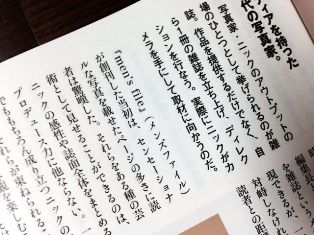 ィアを持った
代の写真家。
写真家、ニックのアウトプットの
場のひとつとして挙げられるのが雑
誌。作品を提供するだけでなく、自
ら1冊の雑誌を立ち上げ、ディレク
ションを行なう。実際にニックがカ
メラを手にして取材に向かうのだ。
『men's file』(メンズファイル)
が創刊した当初は、センセーショナ
ルな写真を載せたページの多さに読
者は驚嘆した。それらをある種の芸
術として見せることができるのは、
ニックの感性や誌面全体をまとめる
プロデュース力に他ならない。
でももちろん成り立つ
ニックの
読者との距
対峙しなけれ
現できるが、